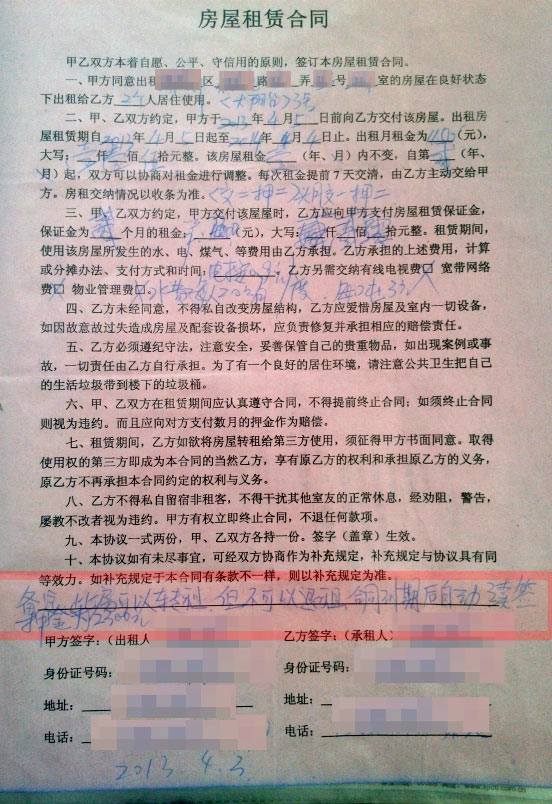 房屋租赁合同
甲乙双方本着自愿、公平、守信用的原则，签订本房屋租赁合同。
一、甲方同意出租 区 路 弄 号 室的房屋在良好状态
下出租给乙方 人居住使用。
二、甲、乙双方约定，甲方于2013年4月5日前向乙方交付该房屋。出租房
屋租赁期自2013年4月5日起至2014年4月4日止。出租月租金为 (元)，
大写： 仟 佰 拾元整。该房屋租金 （年、月）内不变，自第 （年、
月）起，双方可以协商对租金进行调整。每次租金提前7天交清，由乙方主动交给甲
方。房租交纳情况以收条为准。
三、甲、乙双方约定，甲方交付该屋屋时，乙方应向甲方支付房屋租赁保证金，
保证金为 个月的租金； (元)，大写： 仟 佰 拾元整。租赁期间，
使用该房屋所发生的水、电、煤气、等费用由乙方承担。乙方承担的上述费用，计算
或分摊办法、支付方式和时间： 乙方另需交纳有线电视费□ 宽带网络
费□ 物业管理费□。
四、乙方未经同意，不得私自改变房屋结构，乙方应爱惜房屋及室内一切设备，
如因故意故过失造成房屋及配套设备损坏，应负责修复并承担相应的赔偿责任。
五、乙方必须遵纪守法，注意安全，妥善保管自己的贵重物品，如出现案例或事
故，一切责任由乙方自行承担。为了有一个良好的居住环境，请注意公共卫生把自己
的生活垃圾带到楼下的垃圾桶。
六、甲、乙双方在租赁期间应认真遵守合同，不得提前终止合同；如须终止合同
则视为违约。而且应向对方支付数月的押金作为赔偿。
七、租赁期间，乙方如欲将房屋转租给第三方使用，须征得甲方书面同意。取得
使用权的第三方即成为本合同的当然乙方，享有原乙方的权利和承担原乙方的义务，
原乙方不再承担本合同约定的权利与义务。
八、乙方不得私自留宿非租客，不得干扰其他室友的正常休息，经劝阻，警告，
屡教不改者视为违约。甲方有权立即终止合同，不退任何款项。
九、本协议一式两份，甲、乙双方各持一份。签字（盖章）生效。
十、本协议如有未尽事宜，可经双方协商作为补充规定，补充规定与协议具有同
等效力。如补充规定于本合同有条款不一样，则以补充规定为准。
可以转租 但不可以退租 合同到期后自动续签
押金为2300元
甲方签字：（出租人 乙方签字：（承租人）
身份证号码： 身份证号码：
地址： 地址：
电话： 电话：
2013.4.3